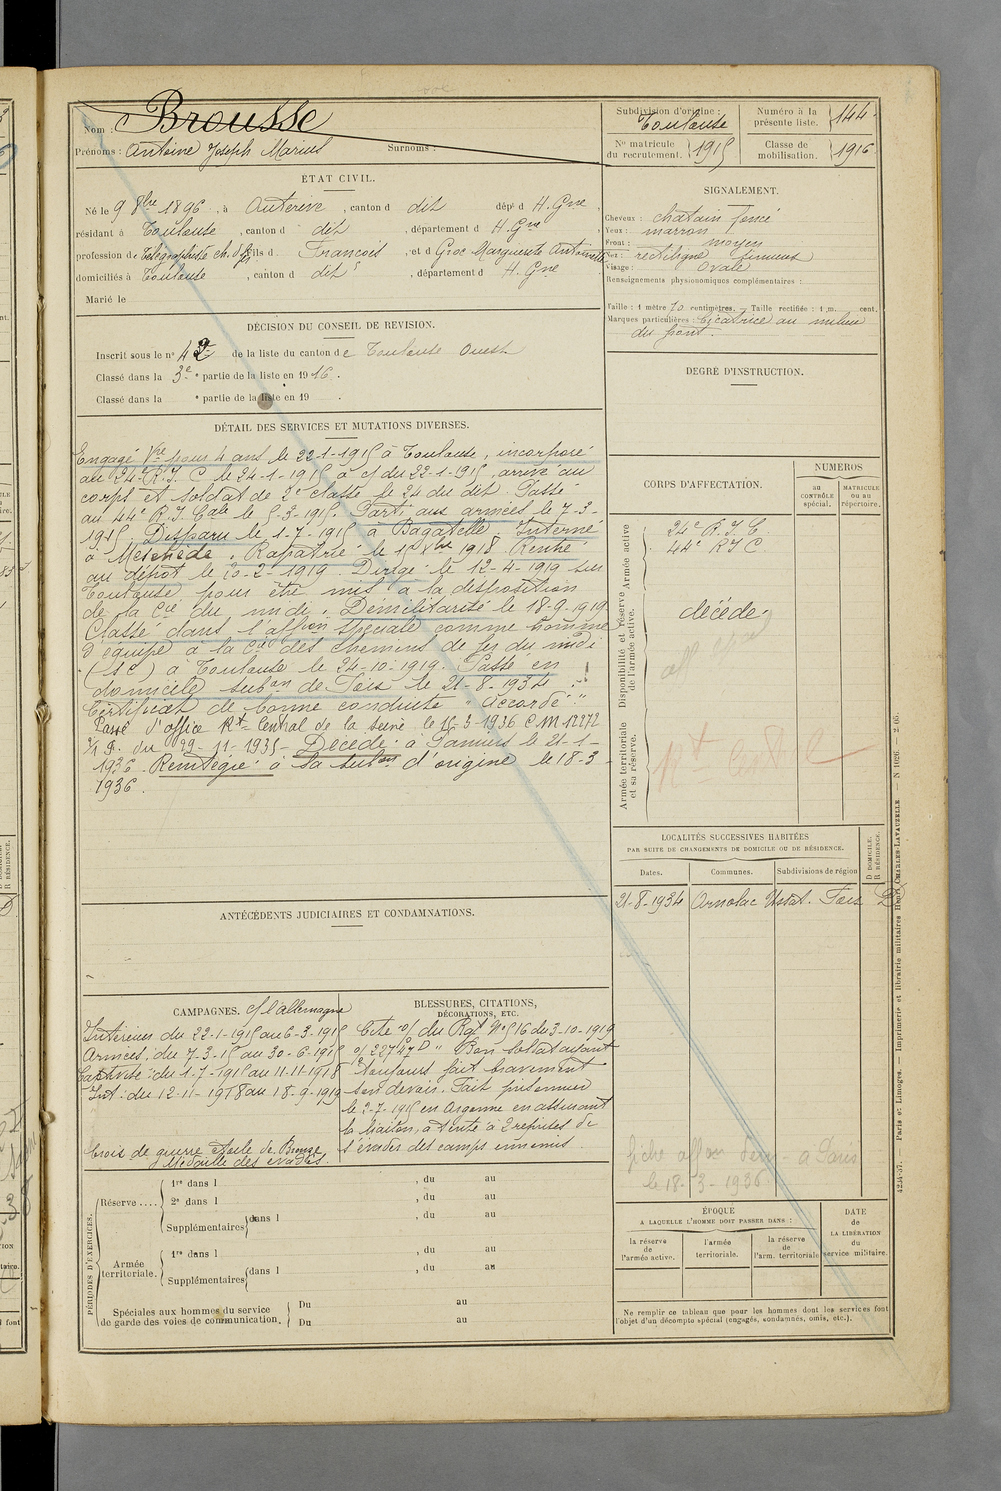 Nom : Brousse
Prénoms : Antoine Joseph Marius Surnoms :
Subdivision d'origine : Toulouse
Numéro à la présente liste. 144
Nº matricule du recrutement. 1915
Classe de mobilisation. 1916
ÉTAT CIVIL.
Né le 9 8bre 1896, à Auterive, canton d dit dépt d H. Gne
résidant à Toulouse, canton d dit, département d H. Gne
profession de télégraphiste ch. d. f. fils d François, et d Groc Marguerite Antoinette
domiciliés à Toulouse, canton d dit, département d H. Gne
Marié le
SIGNALEMENT.
Cheveux : chatain foncé
Yeux : marron
Front : moyen
Nez : rectiligne
Visage : Ovale
Renseignements physionomiques complémentaires :
Taille : 1 mètre 70 centimètres. — Taille rectifiée : 1 m. cent.
Marques particulières : Cicatrice au milieu
du front.
DÉCISION DU CONSEIL DE REVISION.
Inscrit sous le nº 42 de la liste du canton de Toulouse Ouest
Classé dans la 3e partie de la liste en 1916.
Classé dans la e partie de la liste en 19 .
DEGRÉ D'INSTRUCTION.
DÉTAIL DES SERVICES ET MUTATIONS DIVERSES.
Engagé Vre pour 4 ans le 22-1-1915 à Toulouse, incorporé
au 24e R. I. C le 24-1-1915 à c/ du 22-1-1915, arrivé au
corps et soldat de 2e classe le 24 du dit. Passé
au 44e R. I. Cale le 5-3-1915. Parti aux armées le 7-3-
1915. Disparu le 1-7-1915 à Bagatelle. Interné
à Meschède. Rapatrié le 1918. Rentré
au dépôt le 20-2-1919. Dirigé le 12-4-1919 sur
Toulouse pour être mis à la disposition
de la Cie du midi. Démilitarisé le 18-9-1919
Classé dans l'affon spéciale comme homme
d'équipe à la Cie des chemins de fer du midi
(SC) à Toulouse le 24-10-1919. Passé en
domicile subon de Foix le 21-8-1934
Certificat de bonne conduite "Accordé"
Passé d'office Rt Central de la Seine le 15-3-1936 C.M 12272
du 29-11-1935 — Décédé à Pamiers le 21-1-
1936. Réintégré à sa subon d'origine le 18-3-
1936.
CORPS D'AFFECTATION.
NUMÉROS
au CONTRÔLE spécial.
MATRICULE ou au répertoire.
Armée active
24e R. I. C.
44e R I C
Disponibilité et réserve de l'armée active.
décédé.
Armée territoriale et sa réserve.
Rt Central
LOCALITÉS SUCCESSIVES HABITÉES
PAR SUITE DE CHANGEMENTS DE DOMICILE OU DE RÉSIDENCE.
Dates. Communes. Subdivisions de région
D DOMICILE. R RÉSIDENCE.
21-8-1934 Ornolac Ussat. Foix D
ANTÉCÉDENTS JUDICIAIRES ET CONDAMNATIONS.
CAMPAGNES. C/ l'allemagne
Intérieur du 22-1-1915 au 6-3-1915
Armées : du 7-3-15 au 30-6-1915
Captivité : du 1-7-1915 au 11-11-1918
Int : du 12-11-1918 au 18-9-1919
Croix de guerre étoile de Bronze
Médaille des évadés.
BLESSURES, CITATIONS,
DÉCORATIONS, ETC.
Cité o/ du Rgt Nº 516 du 3-10-1919
"Bon soldat ayant
toujours fait bravement
son devoir. Fait prisonnier
le 2-7-1915 en Argonne en assurant
la liaison, a tenté à 2 reprises de
s'évader des camps ennemis.
fiche à Paris
le 18-3-1936
PÉRIODES D'EXERCICES.
Réserve....
1re dans l , du au
2e dans l , du au
Supplémentaires dans l , du au
Armée territoriale.
1re dans l , du au
Supplémentaires dans l , du au
Spéciales aux hommes du service
de garde des voies de communication.
Du au
Du au
ÉPOQUE
A LAQUELLE L'HOMME DOIT PASSER DANS :
la réserve de l'armée active.
l'armée territoriale.
la réserve de l'arm. territoriale
DATE de LA LIBÉRATION du service militaire.
Ne remplir ce tableau que pour les hommes dont les services font
l'objet d'un décompte spécial (engagés, condamnés, omis, etc.).
4234-37. — Paris et Limoges. — Imprimerie et librairie militaires Henri CHARLES-LAVAUZELLE. — N 1026. — 2 05.